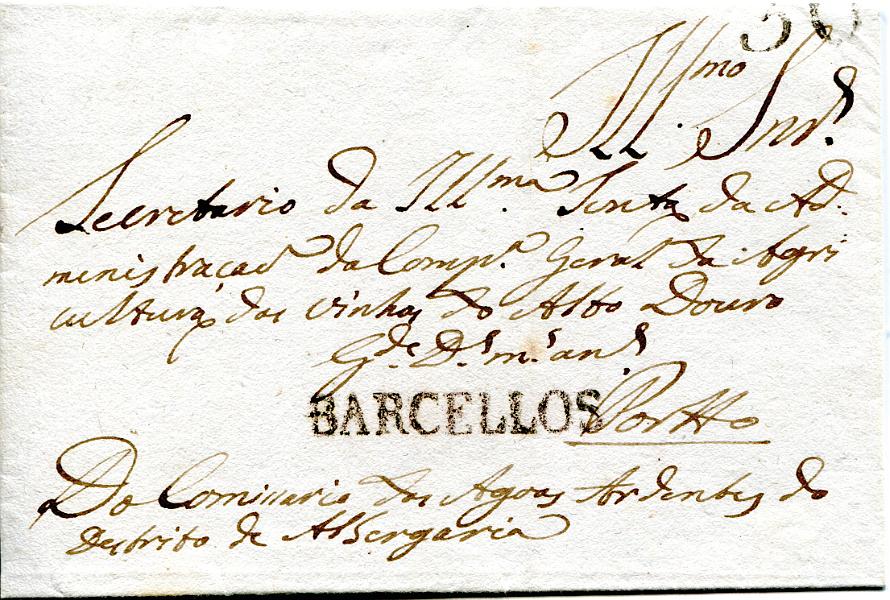 30
Illmo Snr.
Secretario da Illma. Junta da Ad-
menistraçaõ da Comp.a Geral da Agri
cultura das vinhas do Alto Douro
G.de D.s m.s an.s
BARCELLOS Portto
Do Comissario das Agoas Ardentes do
Destrito de Albergaria